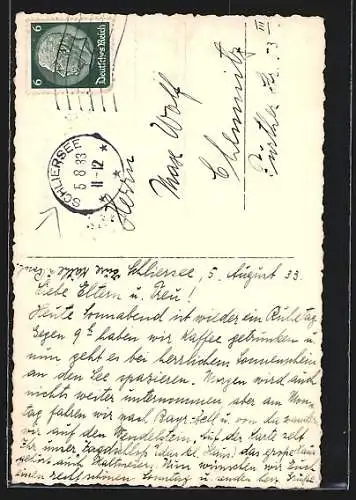 6
6
Deutsches Reich
SCHLIERSEE
5 8 33
11-12
Herrn
Max Wolf
Chemnitz
Fürther Str. 3 III
Schliersee, 5. August 33.
Liebe Eltern u. Treu!
Heute Sonnabend ist wieder ein Ruhetag.
Gegen 9h haben wir Kaffee getrunken u.
nun geht es bei herrlichem Sonnenschein
an den See spazieren. Morgen wird auch
nichts weiter unternommen aber am Mon-
tag fahren wir nach Bayr. Zell u. von da wandern
wir auf den Wendelstein. Auf der Karte seht
Ihr unser Jagdschloß (das kl. Haus) das große
auch Nun wünschen wir Euch
einen recht schönen Sonntag u. senden herzl. Grüße